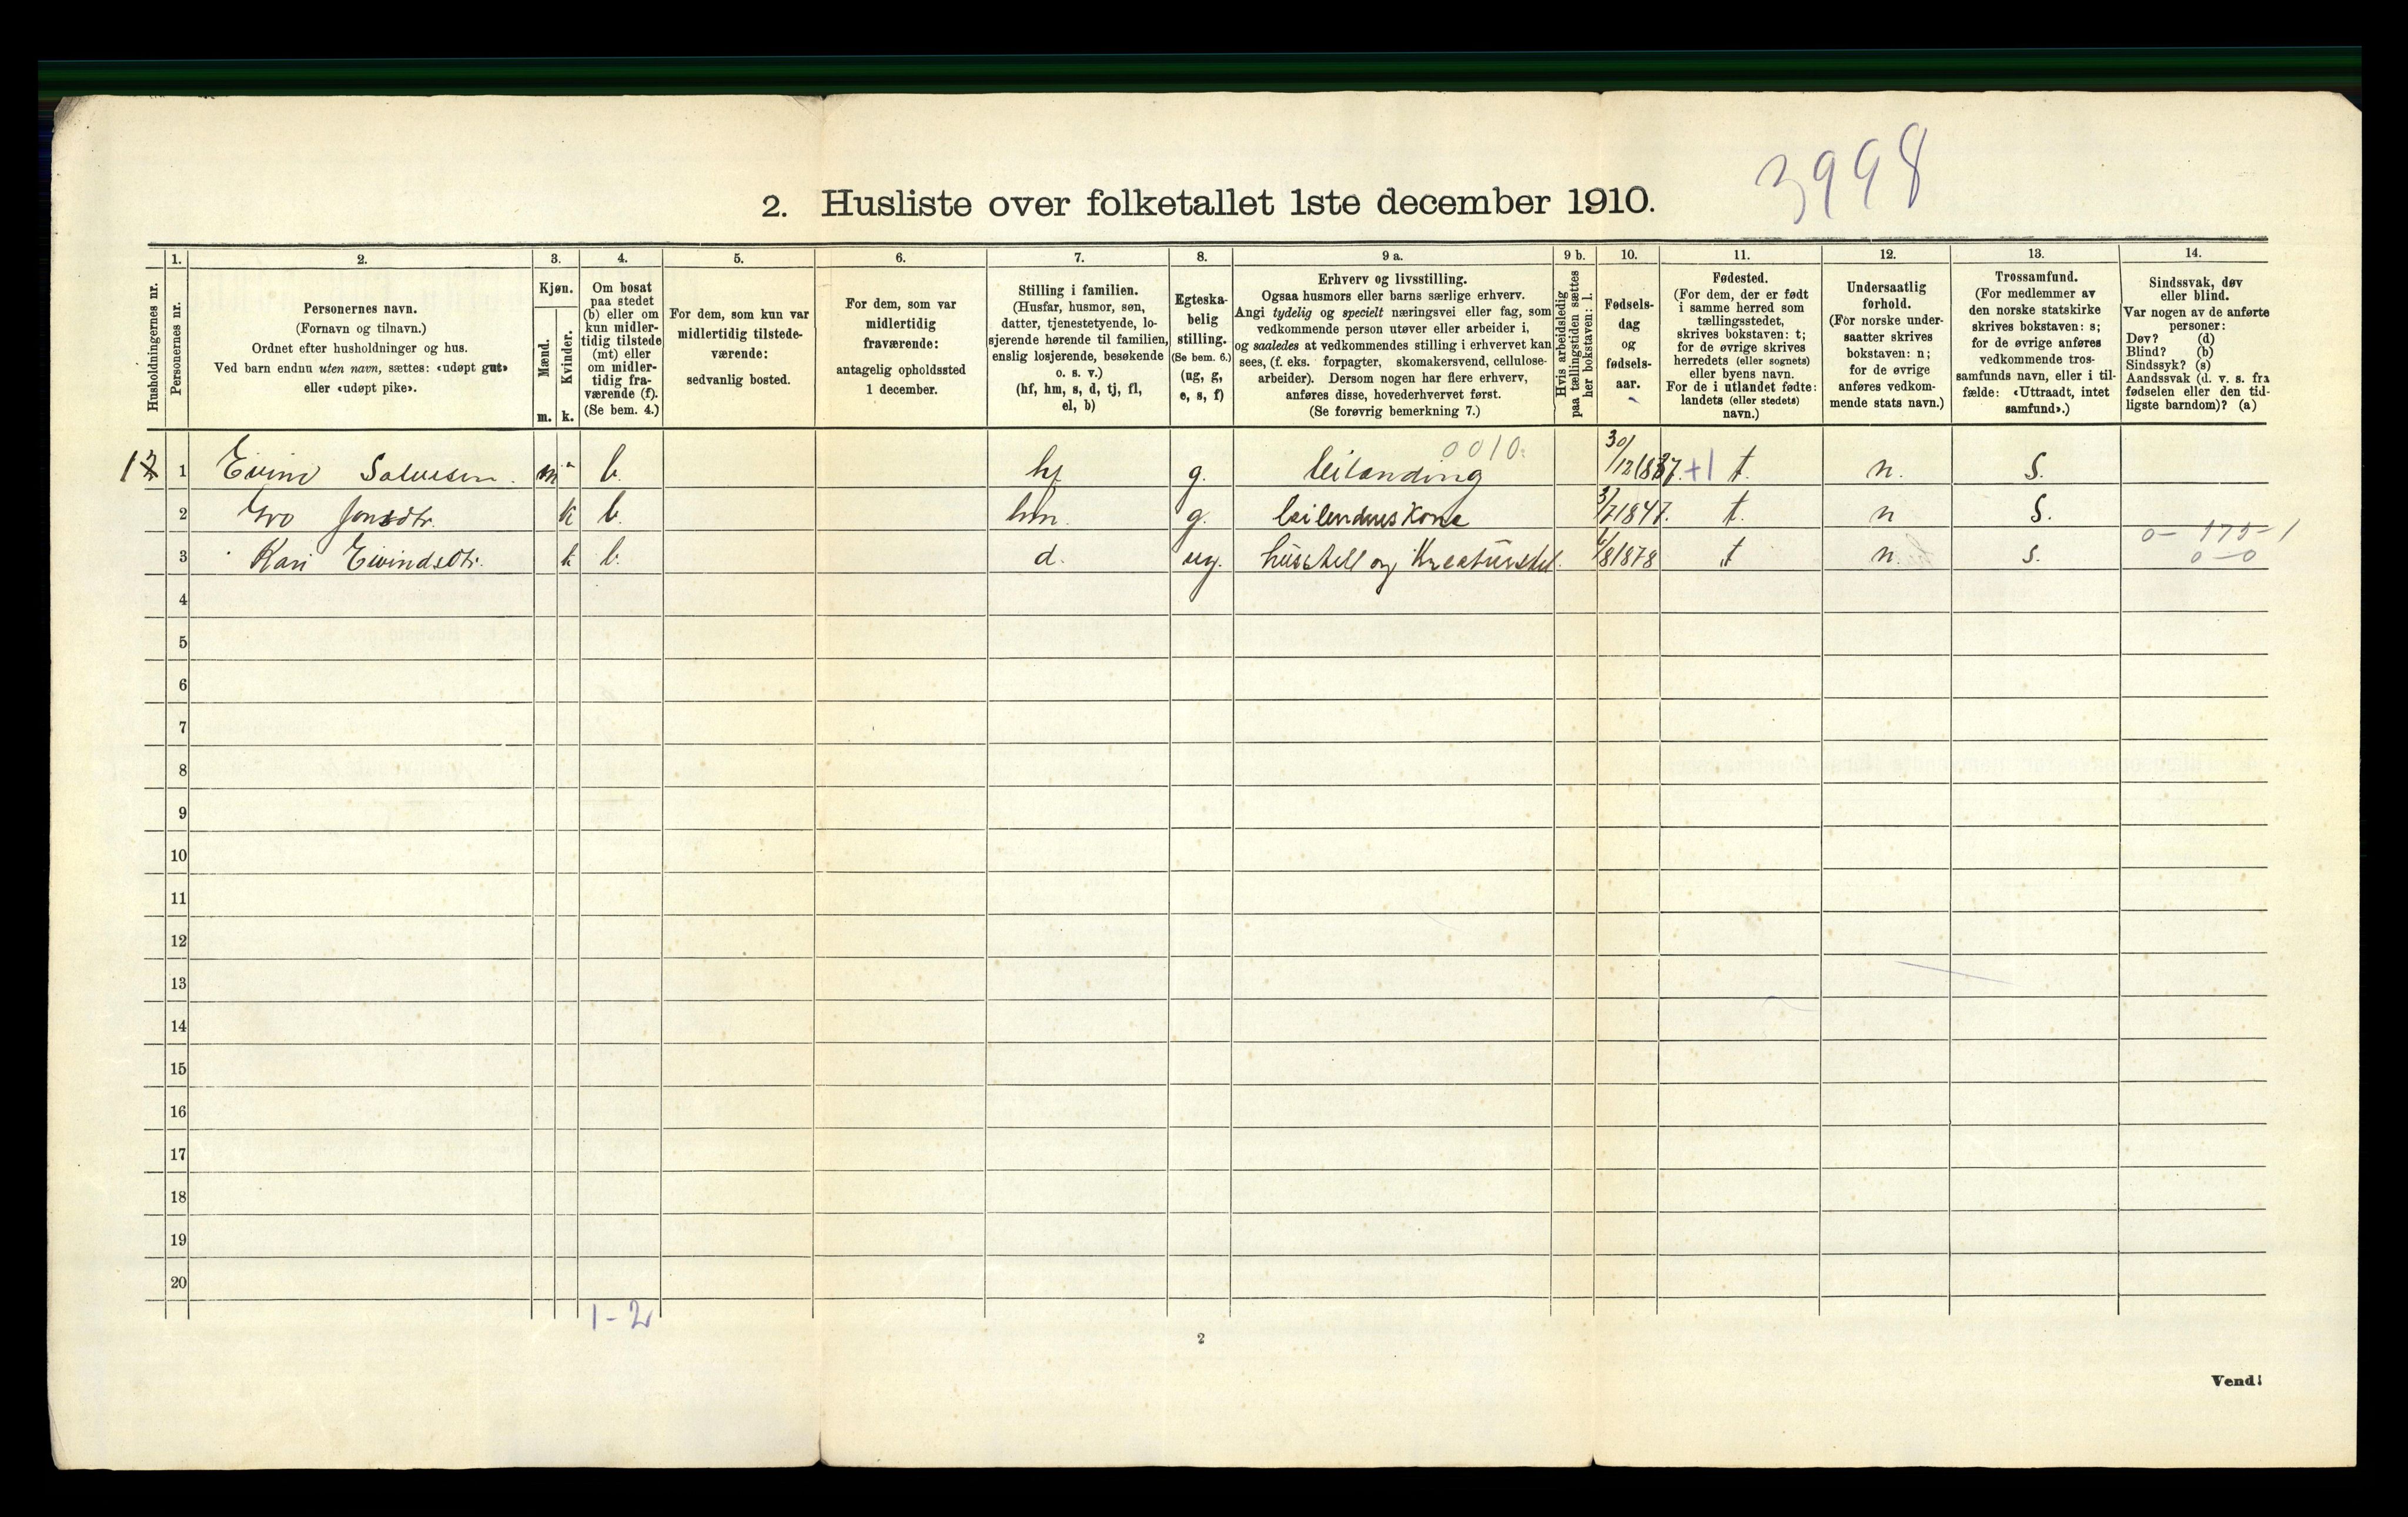 3998
2. Husliste over folketallet 1ste december 1910.
Husholdningernes nr.
1.
Personernes nr.
2.
Personernes navn.
(Fornavn og tilnavn.)
Ordnet efter husholdninger og hus.
Ved barn endnu uten navn, sættes: «udøpt gut»
eller «udøpt pike».
3.
Kjøn.
Mænd.
Kvinder.
m. k.
4.
Om bosat
paa stedet
(b) eller om
kun midler-
tidig tilstede
(mt) eller
om midler-
tidig fra-
værende (f).
(Se bem. 4.)
5.
For dem, som kun var
midlertidig tilstede-
værende:
sedvanlig bosted.
6.
For dem, som var
midlertidig
fraværende:
antagelig opholdssted
1 december.
7.
Stilling i familien.
(Husfar, husmor, søn,
datter, tjenestetyende, lo-
sjerende hørende til familien,
enslig losjerende, besøkende
o. s. v.)
(hf, hm, s, d, tj, fl,
el, b)
8.
Egteska-
belig
stilling.
(Se bem. 6.)
(ug, g,
e, s, f)
9 a.
Erhverv og livsstilling.
Ogsaa husmors eller barns særlige erhverv.
Angi tydelig og specielt næringsvei eller fag, som
vedkommende person utøver eller arbeider i,
og saaledes at vedkommendes stilling i erhvervet kan
sees, (f. eks. forpagter, skomakersvend, cellulose-
arbeider). Dersom nogen har flere erhverv,
anføres disse, hovederhvervet først.
(Se forøvrig bemerkning 7.)
9 b.
Hvis arbeidsledig
paa tællingstiden sættes
her bokstaven: l.
10.
Fødsels-
dag
og
fødsels-
aar.
11.
Fødested.
(For dem, der er født
i samme herred som
tællingsstedet,
skrives bokstaven: t;
for de øvrige skrives
herredets (eller sognets)
eller byens navn.
For de i utlandet fødte:
landets (eller stedets)
navn.)
12.
Undersaatlig
forhold.
(For norske under-
saatter skrives
bokstaven: n;
for de øvrige
anføres vedkom-
mende stats navn.)
13.
Trossamfund.
(For medlemmer av
den norske statskirke
skrives bokstaven: s;
for de øvrige anføres
vedkommende tros-
samfunds navn, eller i til-
fælde: «Uttraadt, intet
samfund».)
14.
Sindssvak, døv
eller blind.
Var nogen av de anførte
personer:
Døv? (d)
Blind? (b)
Sindssyk? (s)
Aandssvak (d. v. s. fra
fødselen eller den tid-
ligste barndom)? (a)
0010.
1 Eivind Salvesen. m b. hf g. leilænding 30/12 +1 t. n. S.
2 Gro Jonsdtr. k b. hm. g. leilendnuskone 3/7 1847. t. n S.
0-175-1
3 Kari Eivindsdtr. k b. d. ug. husstell og Kreaturstel. /8 1878 t n. s. 0-0
4
5
6
7
8
9
10
11
12
13
14
15
16
17
18
19
20
1-2
2
Vend!